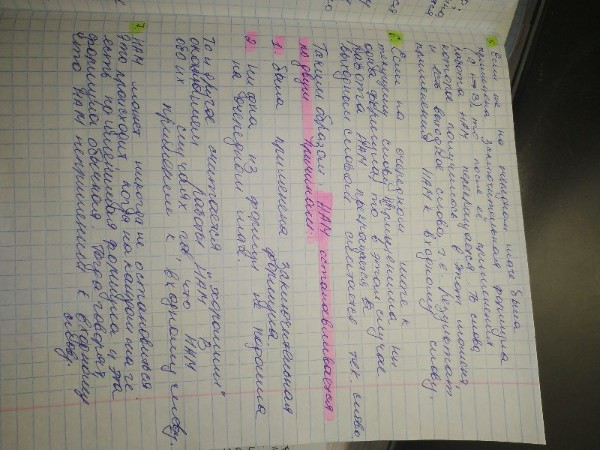 5. Если же на очередном шаге была
применена заключительная формула
то после её применения
работа НАМ прекращается. То слово,
которое получилось в этот момент,
и есть выходное слово, т.е. результат
применения НАМ к входному слову.
6. Если на очередном шаге к
текущему слову не применима ни
одна формула, то в этом случае
работа НАМ прекращается, а
выходным словом считается тек. слово.
Таким образом, НАМ останавливается
по двум причинам:
1. была применена заключительная
формула.
2. Ни одна из формул не подошла
на очередном шаге.
То и другое считается "хорошим"
окончанием работы НАМ. В
обоих случаях гов, что НАМ
применение к входному слову.
7. НАМ может никогда не остановиться.
Это происходит, когда на каждом шаге
есть применимая формула и эта
формула обычная. Тогда говорят,
что НАМ неприменим к входному
слову.